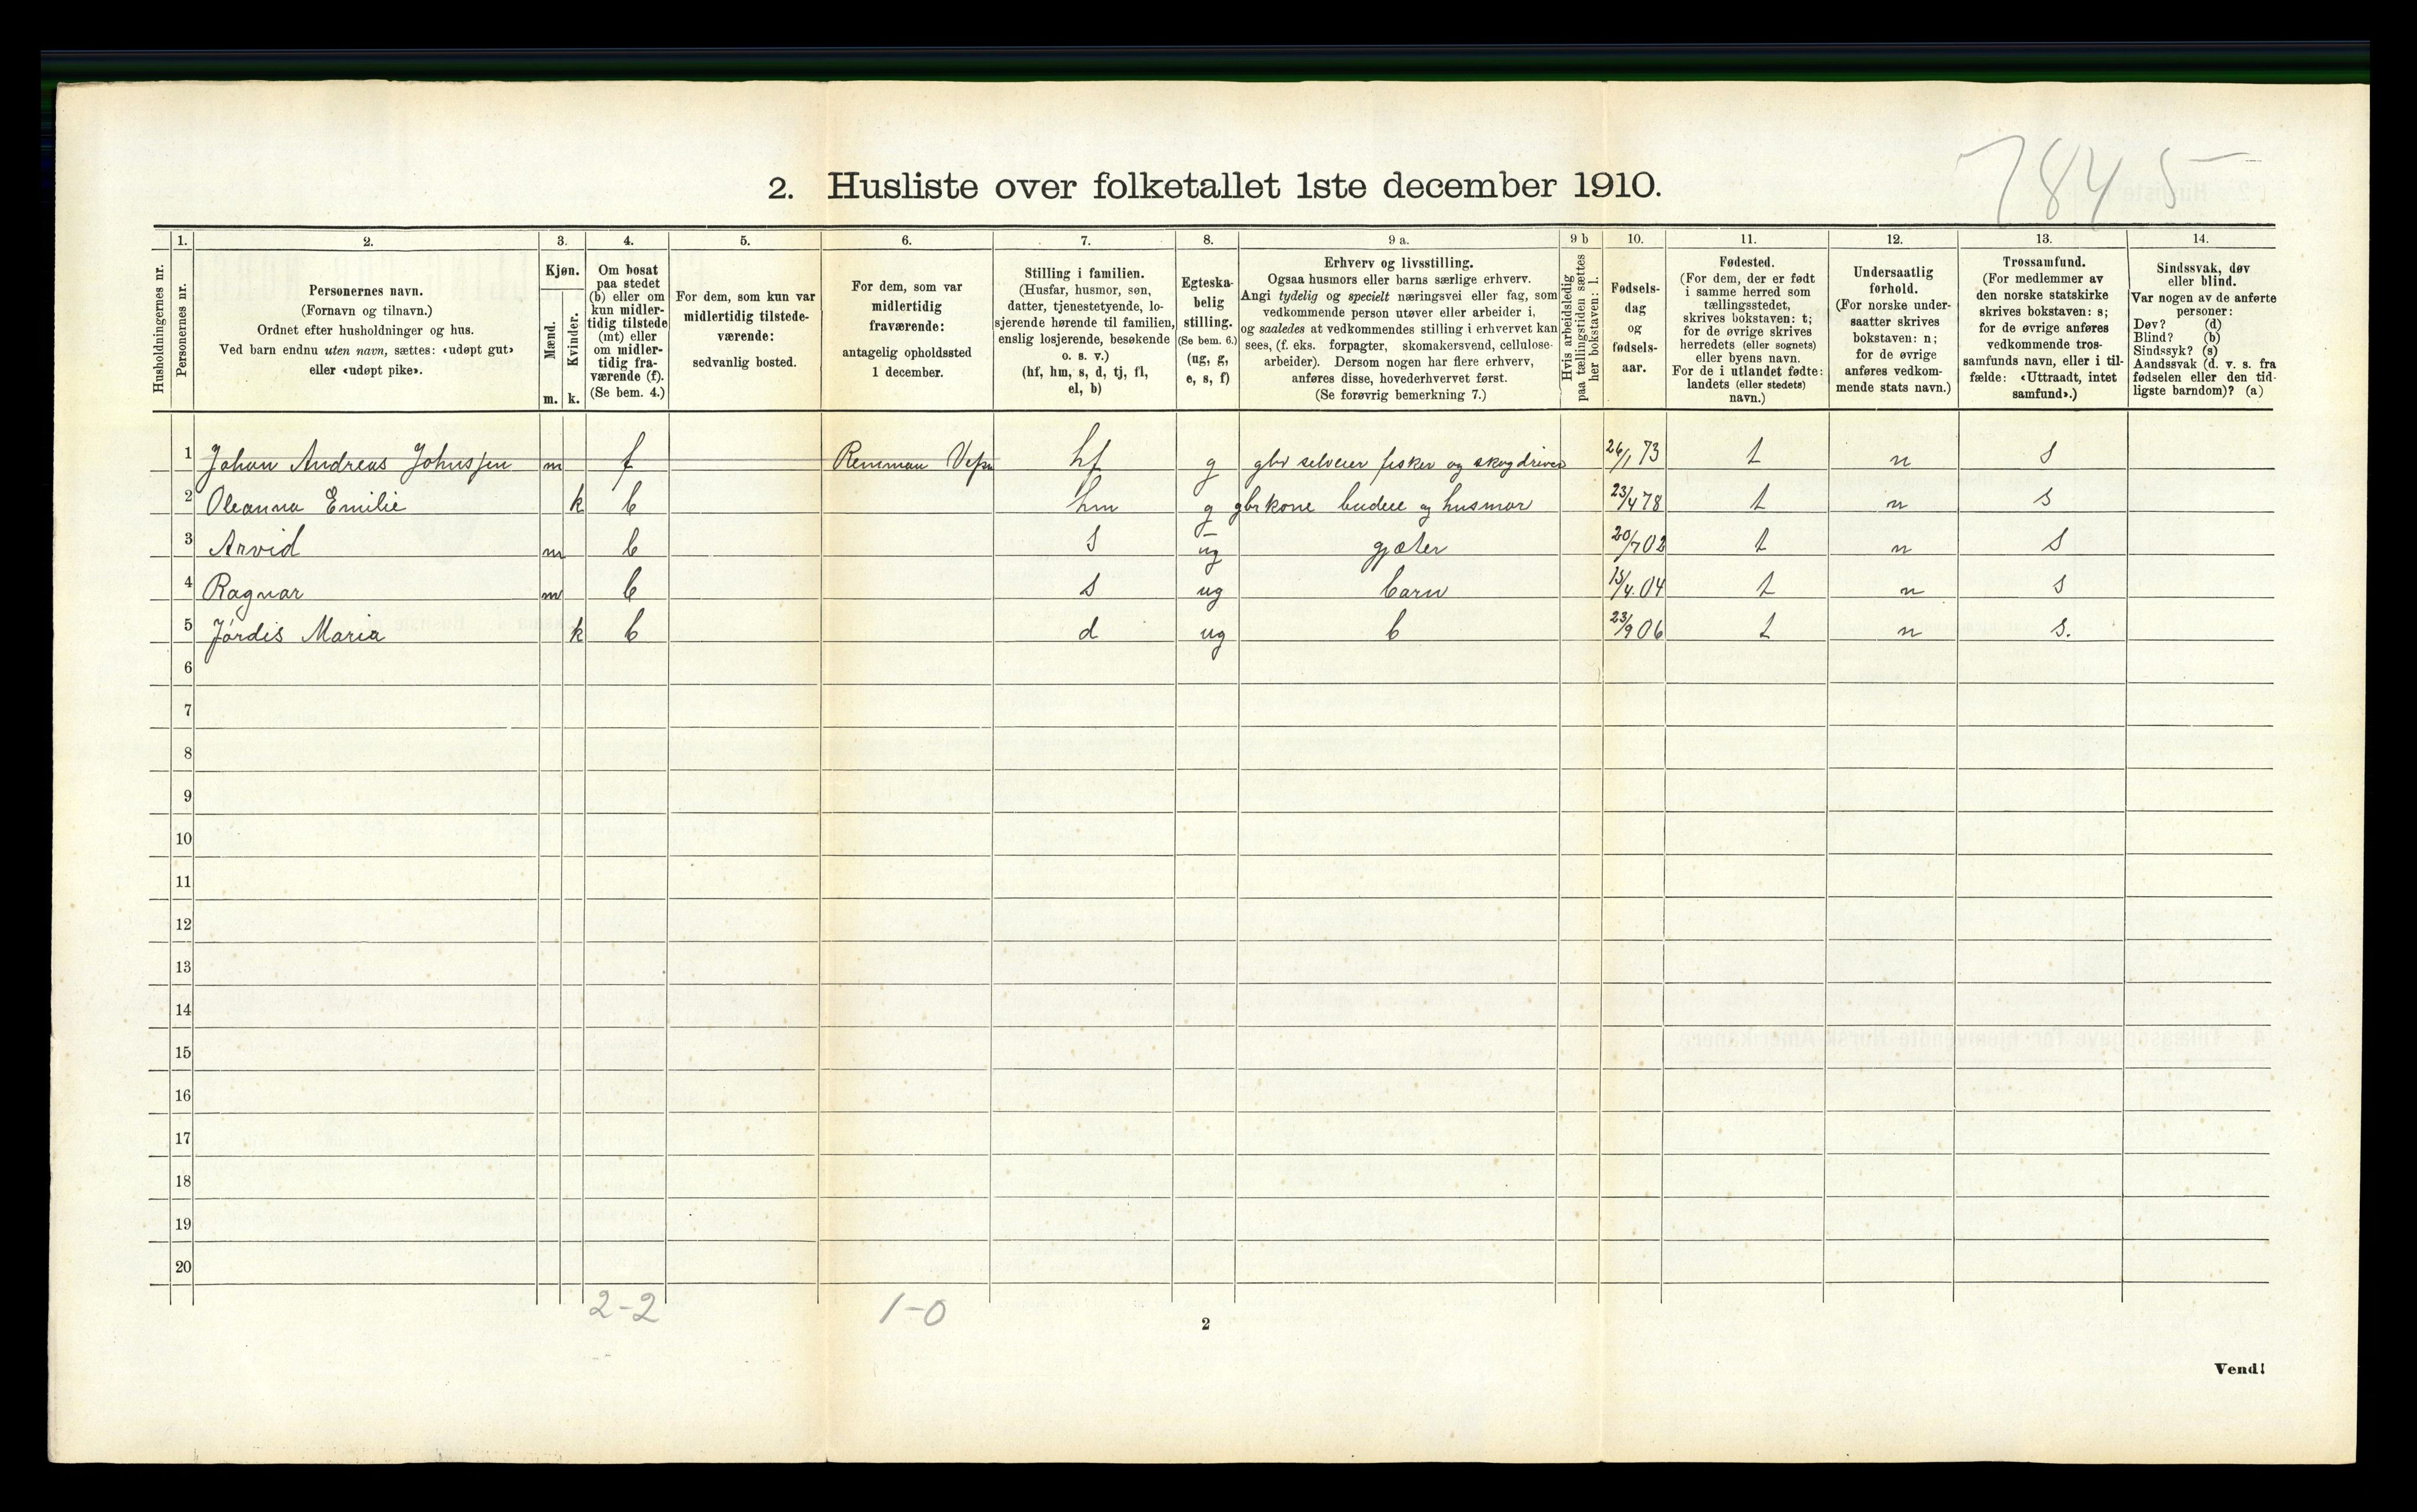 7845
2. Husliste over folketallet 1ste december 1910.
Husholdningernes nr.
1.
Personernes nr.
2.
Personernes navn.
(Fornavn og tilnavn.)
Ordnet efter husholdninger og hus.
Ved barn endnu uten navn, sættes: «udøpt gut»
eller «udøpt pike».
3.
Kjøn.
Mænd.
m.
Kvinder.
k.
4.
Om bosat
paa stedet
(b) eller om
kun midler-
tidig tilstede
(mt) eller
om midler-
tidig fra-
værende (f).
(Se bem. 4.)
5.
For dem, som kun var
midlertidig tilstede-
værende:
sedvanlig bosted.
6.
For dem, som var
midlertidig
fraværende:
antagelig opholdssted
1 december.
7.
Stilling i familien.
(Husfar, husmor, søn,
datter, tjenestetyende, lo-
sjerende hørende til familien,
enslig losjerende, besøkende
o. s. v.)
(hf, hm, s, d, tj, fl,
el, b)
8.
Egteska-
belig
stilling.
(Se bem. 6.)
(ug, g,
e, s, f)
9 a.
Erhverv og livsstilling.
Ogsaa husmors eller barns særlige erhverv.
Angi tydelig og specielt næringsvei eller fag, som
vedkommende person utøver eller arbeider i,
og saaledes at vedkommendes stilling i erhvervet kan
sees, (f. eks. forpagter, skomakersvend, cellulose-
arbeider). Dersom nogen har flere erhverv,
anføres disse, hovederhvervet først.
(Se forøvrig bemerkning 7.)
9 b
Hvis arbeidsledig
paa tællingstiden sættes
her bokstaven: l.
10.
Fødsels-
dag
og
fødsels-
aar.
11.
Fødested.
(For dem, der er født
i samme herred som
tællingsstedet,
skrives bokstaven: t;
for de øvrige skrives
herredets (eller sognets)
eller byens navn.
For de i utlandet fødte:
landets (eller stedets)
navn.)
12.
Undersaatlig
forhold.
(For norske under-
saatter skrives
bokstaven: n;
for de øvrige
anføres vedkom-
mende stats navn.)
13.
Trossamfund.
(For medlemmer av
den norske statskirke
skrives bokstaven: s;
for de øvrige anføres
vedkommende tros-
samfunds navn, eller i til-
fælde: «Uttraadt, intet
samfund».)
14.
Sindssvak, døv
eller blind.
Var nogen av de anførte
personer:
Døv? (d)
Blind? (b)
Sindssyk? (s)
Aandssvak (d. v. s. fra
fødselen eller den tid-
ligste barndom)? (a)
1 Johan Andreas Johnssen m f hf g gbr selveier fisker og skogdriver 26/1 73 t n s
2 Oleanna Emilie k b hm g gbrkone budeie og husmor 23/4 78 t n s
3 Arvid m b s ug gjæter 20/7 02 t n s
4 Ragnar m b s ug barn 15/4. 04 t n s
5 Jórdis Maria k b d ug b 23/9 06 t n s.
6
7
8
9
10
11
12
13
14
15
16
17
18
19
20
2-2 1-0
2
Vend!